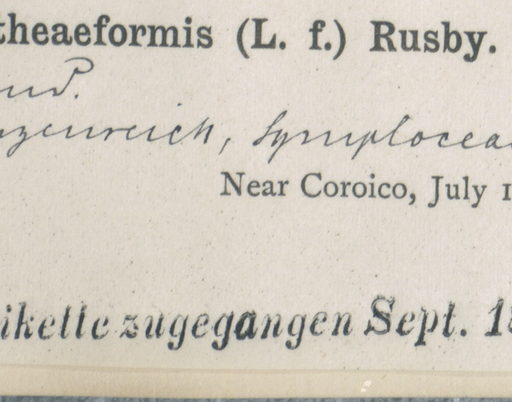 theaeformis (L. f.) Rusby.
nzenreich, Symplocea
Near Coroico, July 1
ikette zugegangen Sept. 18